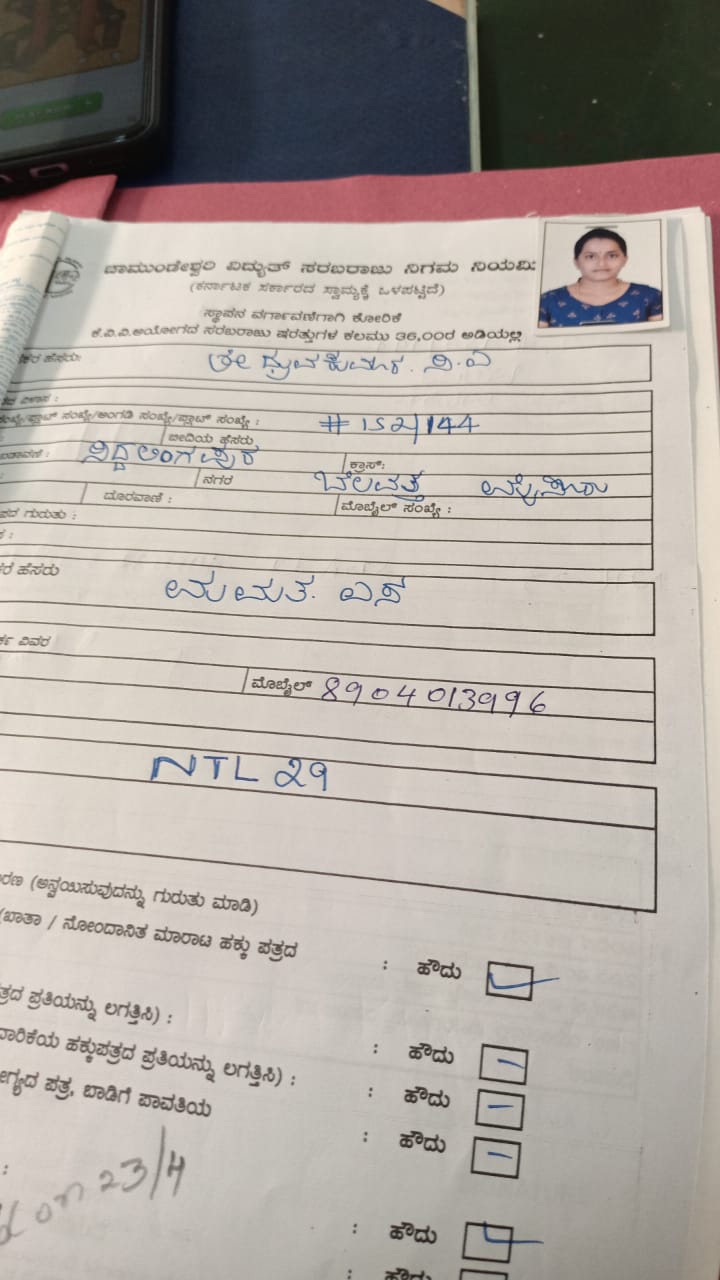 ಚಾಮುಂಡೇಶ್ವರಿ ವಿದ್ಯುತ್ ಸರಬರಾಜು ನಿಗಮ ನಿಯಮಿ
(ಕರ್ನಾಟಕ ಸರ್ಕಾರದ ಸ್ವಾಮ್ಯಕ್ಕೆ ಒಳಪಟ್ಟಿದೆ)
ಸ್ಥಾವರ ವರ್ಗಾವಣೆಗಾಗಿ ಕೋರಿಕೆ
ಕೆ.ವಿ.ವಿ.ಆಯೋಗದ ಸರಬರಾಜು ಷರತ್ತುಗಳ ಕಲಮು 36,00ರ ಅಡಿಯಲ್ಲಿ
ಹೆಸರು ಶ್ರೀ ಧ್ರುವಕುಮಾರ. ವಿ.ಎ
ವಿಳಾಸ :
ಸಂಖ್ಯೆ/ಪ್ಲಾಟ್ ಸಂಖ್ಯೆ/ಅಂಗಡಿ ಸಂಖ್ಯೆ/ಪ್ಲಾಟ್ ಸಂಖ್ಯೆ : # 152/144
ಬೀದಿಯ ಹೆಸರು
ಬಡಾವಣೆ : ಸಿದ್ದಲಿಂಗಪುರ ಕ್ರಾಸ್:
ನಗರ ಬೆಲವತ್ತ ಮೈಸೂರು
ದೂರವಾಣಿ : ಮೊಬೈಲ್ ಸಂಖ್ಯೆ :
ಗುರುತು :
ಹೆಸರು ಮಮತ. ಎಸ್
ವಿವರ
ಮೊಬೈಲ್ 8904013996
NTL 29
(ಅನ್ವಯಿಸುವುದನ್ನು ಗುರುತು ಮಾಡಿ)
(ಖಾತಾ / ನೋಂದಾನಿತ ಮಾರಾಟ ಹಕ್ಕು ಪತ್ರದ : ಹೌದು
ಪ್ರತಿಯನ್ನು ಲಗತ್ತಿಸಿ) :
: ಹೌದು
ಹಕ್ಕುಪತ್ರದ ಪ್ರತಿಯನ್ನು ಲಗತ್ತಿಸಿ) : : ಹೌದು
ಪತ್ರ, ಬಾಡಿಗೆ ಪಾವತಿಯ : ಹೌದು
on 23/4
: ಹೌದು
: ಹೌದು